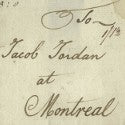 To
Jacob Jordan
at
Montreal